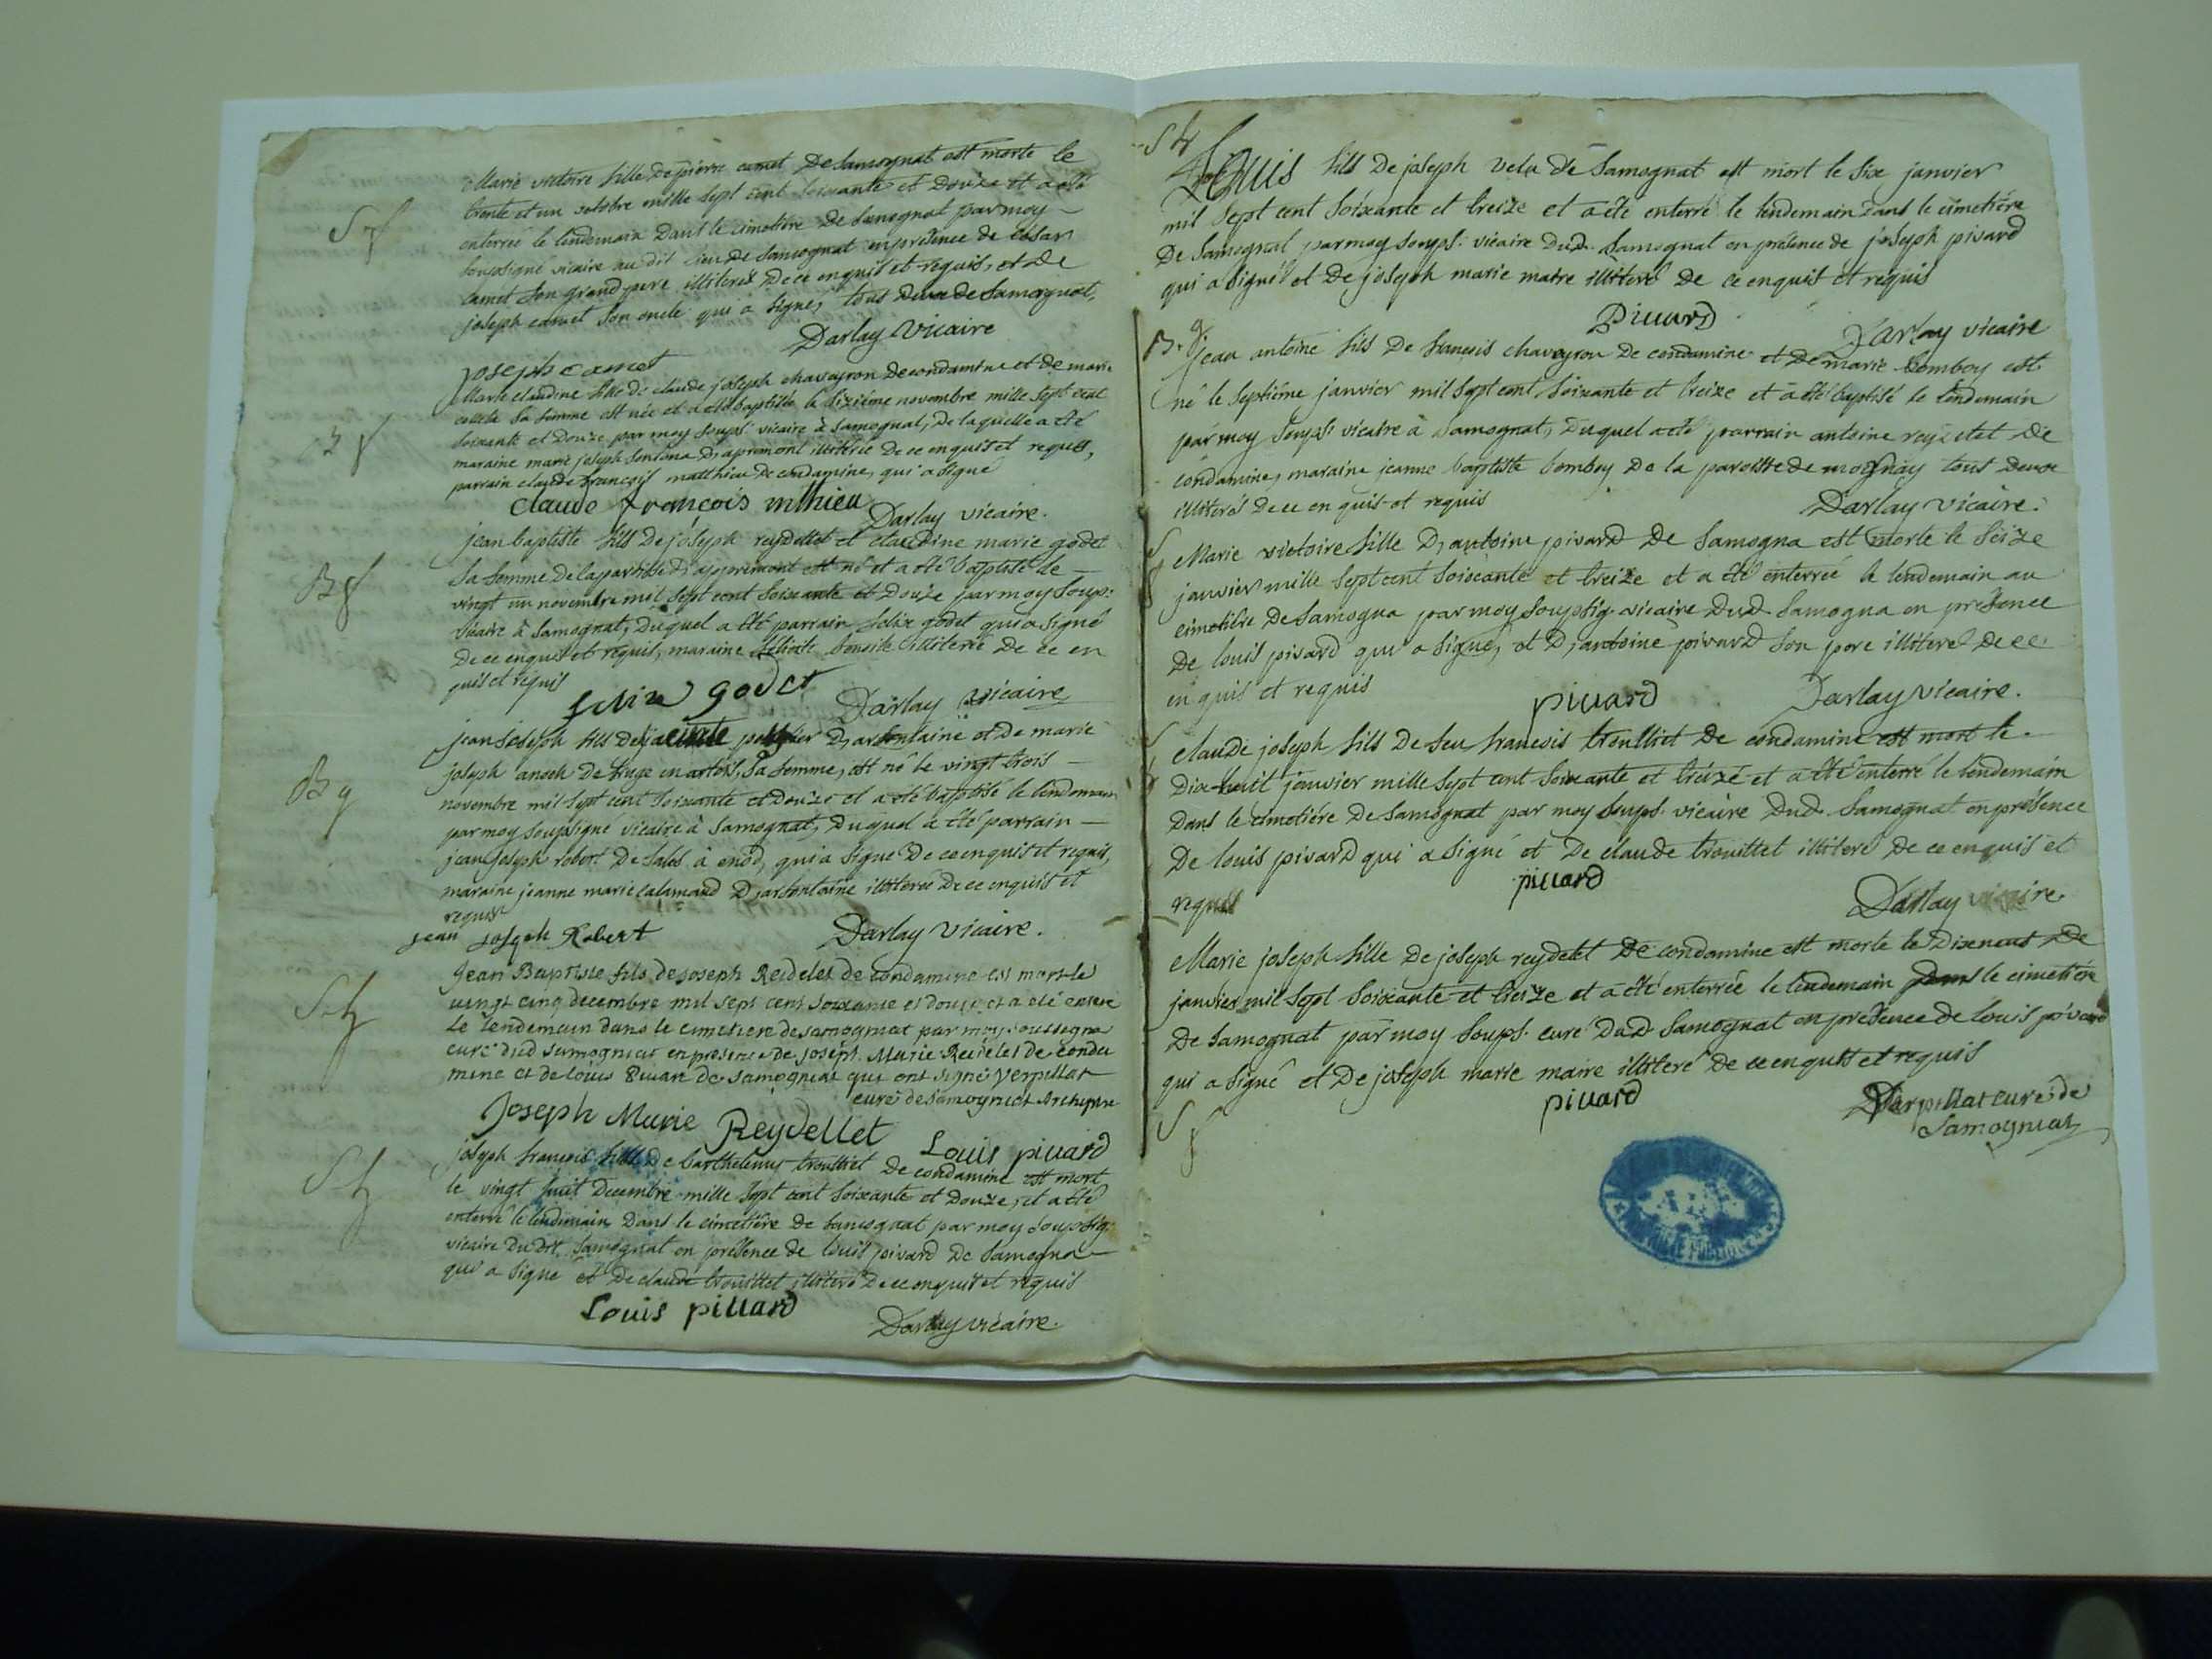 Marie victoire fille de pierre camet de Samognat est morte le
trente et un octobre mille sept cent soixante et douze et a été
enterrée le lendemain dans le cimetière de samognat par moy
soussigné vicaire au dit lieu de samognat en présence de cesar
camet son grand pere illiteré de ce enquis et requis, et de
joseph camet son oncle qui a signé, tous deux de samognat,
joseph camet
Darlay vicaire
Marie claudine fille de claude joseph chavayron de condamine et de marie
sa femme est née et a été baptisée le sixième novembre mille sept cent
soixante et douze par moy soups. vicaire à samognat, de laquelle a été
maraine marie joseph D, apremont illiterée de ce enquis et requis,
parrain claude françois matthieu de condamine, qui a signé
claude françois mthieu
Darlay vicaire.
jean baptiste fils de joseph reydellet et claudine marie godet
sa femme de la paroisse d'appremont est né et a été baptisé le
vingt un novembre mil sept cent soixante et douze par moy soup:
vicaire à samognat, duquel a été parrain felix godet qui a signé
de ce enquis et requis, maraine illiterée de ce en
quis et requis
felix godet
Darlay vicaire
jean joseph fils de jacinte D, arfontaine et de marie
joseph anoch sa femme, est né le vingt trois
novembre mil sept cent soixante et douze et a été baptisé le lendemain
par moy soupsigné vicaire à samognat, duquel a été parrain
jean joseph robert de sales à enod, qui a signé de ce enquis et requis,
maraine jeanne marie calamard D, arfontaine illiterée de ce enquis et
requis
jean joseph Robert
Darlay vicaire.
Jean Baptiste fils de joseph Reidelet de condamine est mort le
vingt cinq decembre mil sept cent soixante et douze et a été enterré
le lendemain dans le cimetiere de samogniat par moy soussigné
curé dud samogniat en presence de joseph Marie Reidelet de conda
mine et de louis Pivard de samogniat qui ont signé Verpillat
curé de samogniat Archiprêtre
Joseph Marie Reydellet
Louis pivard
joseph françois fils de barthelemy trouilliet de condamine est mort
le vingt huit decembre mille sept cent soixante et douze, et a été
enterré le lendemain dans le cimetière de samognat par moy soupsig:
vicaire du dit samognat en présence de louis pivard de samogna
qui a signé et de claude trouilliet illiteré de ce enquis et requis
Louis pivard
Darlay vicaire.
Louis fils de joseph vela de samognat est mort le six janvier
mil sept cent soixante et treize et a été enterré le lendemain dans le cimetière
de samognat par moy soups: vicaire dud. samognat en présence de joseph pivard
qui a signé et de joseph marie maire illiteré de ce enquis et requis
Pivard
Darlay vicaire
jean antoine fils de francois chavayron de condamine et de marie bomboy est
né le septième janvier mil sept cent soixante et treize et a été baptisé le lendemain
par moy soups: vicaire à samognat, duquel a été parrain antoine reydelet de
condamine, maraine jeanne baptiste bomboy de la paroisse de tous deux
illiterés de ce en quis et requis
Darlay vicaire.
Marie victoire fille D, antoine pivard de samogna est morte le seize
janvier mille sept cent soixante et treize et a été enterrée le lendemain au
cimetière de samogna par moy soupsig. vicaire dud samogna en présence
de louis pivard qui a signé, et D, antoine pivard son pere illiteré de ce
en quis et requis
pivard
Darlay vicaire.
claude joseph fils de feu francois trouilliet de condamine est mort le
dix-huit janvier mille sept cent soixante et treize et a été enterré le lendemain
dans le cimetière de samognat par moy soups. vicaire dud samognat en présence
de louis pivard qui a signé et de claude trouillet illiteré de ce enquis et
requis
pivard
Darlay vicaire
Marie joseph fille de joseph reydelet de condamine est morte le dixneuf de
janvier mil sept soixante et treize et a été enterrée le lendemain dans le cimetière
de samognat par moy soups. curé dud samognat en présence de louis pivard
qui a signé et de joseph marie maire illiteré de ce enquis et requis
pivard
Verpillat curé de
Samogniat